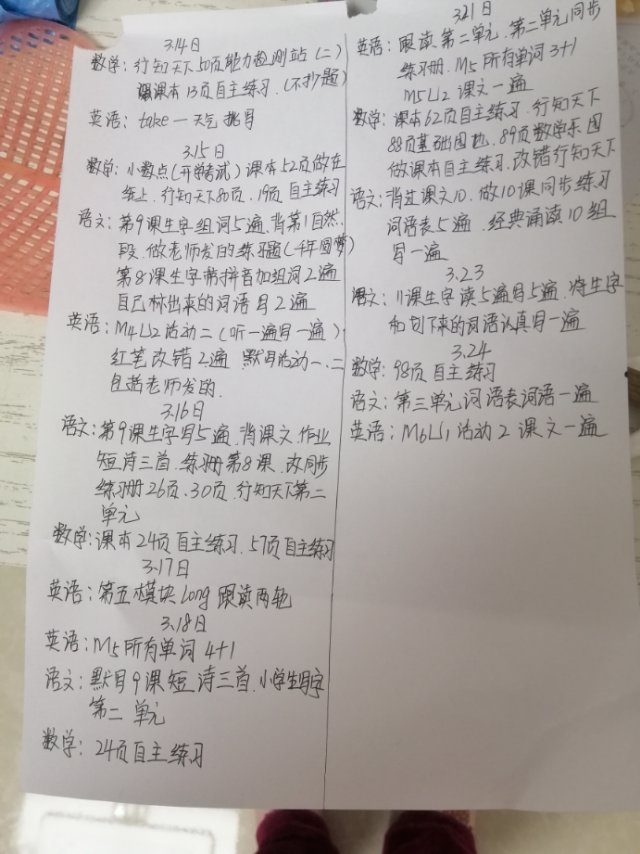 3.14日
数学：行知天下50页能力检测站（二）
课本13页自主练习.（不抄题）
英语：take一天气 抄写
3.15日
数学：小数点（开学考试）课本52页做在
线上.行知天下80页.19页自主练习
语文：第9课生字组词5遍.背第1自然
段.做老师发的练习题（千年圆梦）
第8课生字带拼音加组词2遍
自己标出来的词语写2遍
英语：M4U2活动二（听一遍写一遍）
红笔改错2遍 默写活动一、二
老师发的.
3.16日
语文：第9课生字写5遍.背课文.作业
短诗三首.练习册第8课.改同步
练习册26页.30页.行知天下第二
单元
数学：课本24页自主练习.57页自主练习
3.17日
英语：第五模块Long跟读两轮
3.18日
英语：M5所有单词4+1
语文：默写9课短诗三首.小学生写字
第二单元
数学：24页自主练习
3.21日
英语：跟读第二单元.第二单元同步
练习册.M5所有单词3+1
M5U2课文一遍
数学：课本62页自主练习.行知天下
88页基础园地.89页数学乐园
做课本自主练习.改错行知天下
语文：背过课文10.做10课同步练习
词语表5遍 经典诵读10组
写一遍
3.23
语文：11课生字读5遍写5遍.将生字
和划下来的词语认真写一遍
3.24
数学：98页自主练习
语文：第三单元词语表词语一遍
英语：M6U1活动2课文一遍